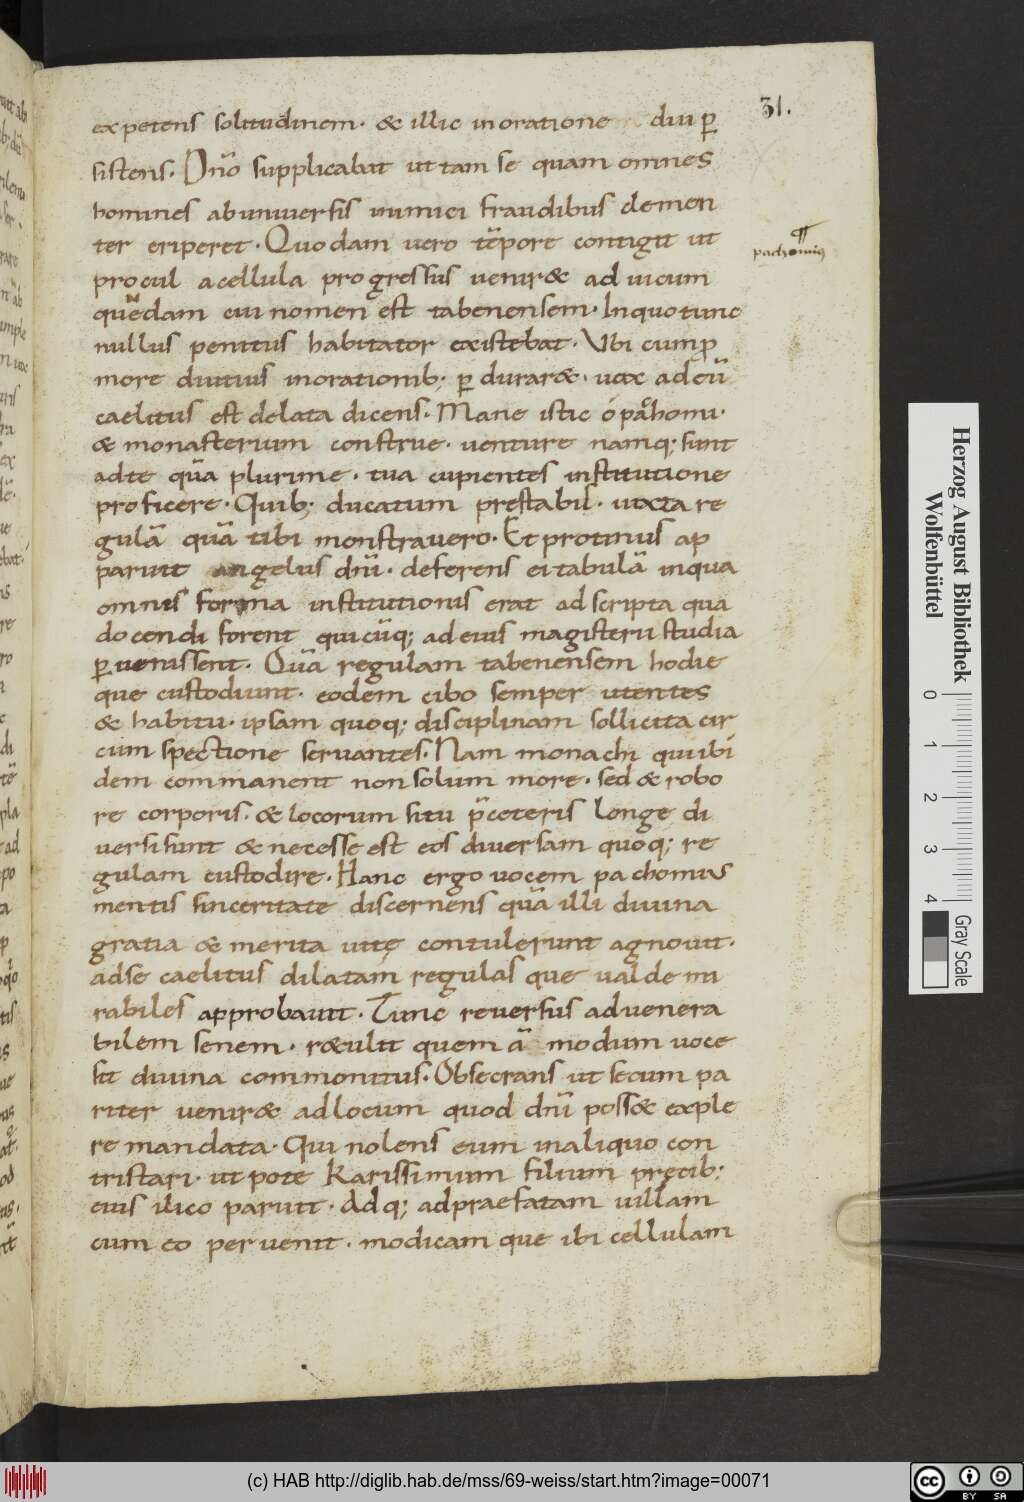 31.
expetens solitudinem· & illic inoratione diu p̱
sistens· Dn̄o supplicabat ut tam se quam omnes
homines abuniuersis inimici fraudibus clemen
ter eriperet· Quodam uero tēpore contigit ut
pachomius
procul acellula progressus uenir& aduicum
quēdam cui nomen est tabenensem· Inquotunc
nullus penitus habitator existebat· Vbi cump̱
more diutius inorationib; p̱durar&· uox adeū
caelitus est delata dicens· Mane istic ó pachomi·
& monasterium construe· venture namq; sunt
adte quā plurime· tua cupientes institutione
proficere· Quib; ducatum prestabis· iuxta re
gulā quā tibi monstrauero· Et protinus ap
paruit angelus dn̄i· deferens ei tabulā inqua
omnis forma institutionis erat adscripta qua
docendi forent quicūq; adeius magisterii studia
p̱uenissent· Quā regulam tabenensem hodie
que custodiunt· eodem cibo semper utentes
& habitu· ipsam quoq; disciplinam sollicita cir
cumspectione servantes· Nam monachi quiibi
dem commanent nonsolum more· sed & robo
re corporis· & locorum situ p̄ceteris longe di
uersisunt & necesse est eos diversam quoq; re
gulam custodire· Hanc ergo vocem pachomius
mentis sinceritate discernens quā illi divina
gratia & merita uitę contulerunt agnouit·
adse caelitus dilatam regulas que ualde mi
rabiles approbauit· Tunc reversus aduenera
bilem senem· r&ulit quem ā modum uoce
sit diuina commonitus· Obsecrans ut secum pa
riter uenir& adlocum quod dn̄i poss& exple
re mandata· Qui nolens eum inaliquo con
tristari· utpote karissimum filium prȩcib;
eius ilico paruit· Adq; adpraefatam uillam
cum eo pervenit· modicam que ibi cellulam
Herzog August Bibliothek
Wolfenbüttel
0 1 2 3 4
Gray Scale
(c) HAB http://diglib.hab.de/mss/69-weiss/start.htm?image=00071
cc BY SA